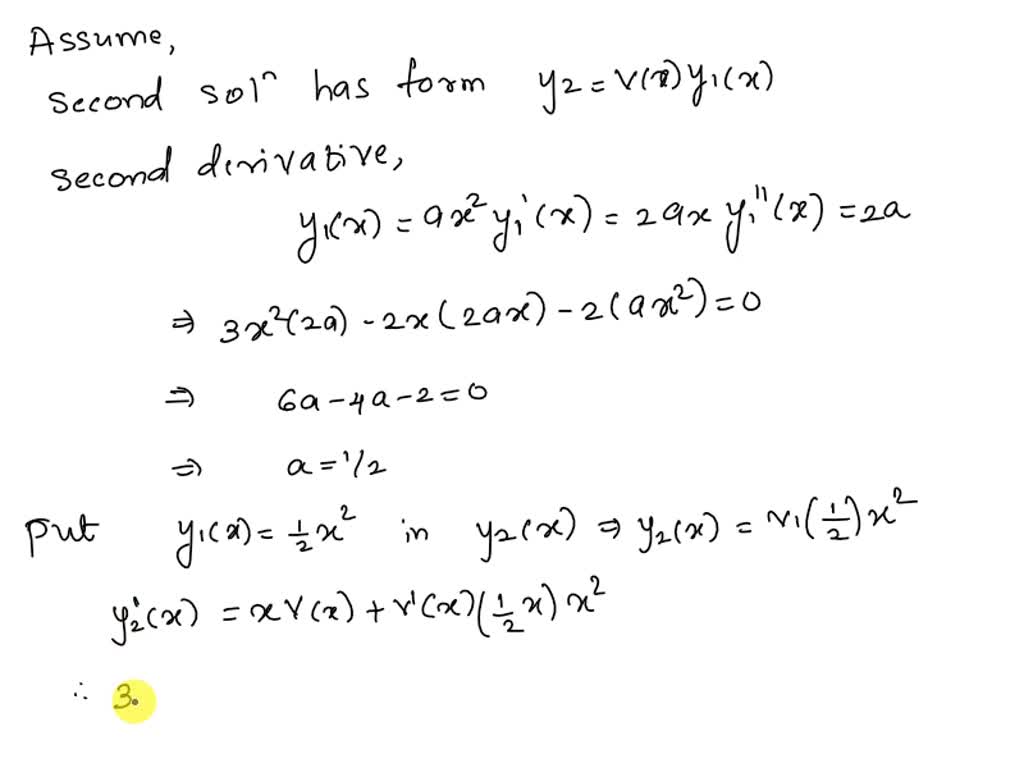 Assume,
second solⁿ has form y₂ = v(x) y₁(x)
second derivative,
y₁(x) = ax² y₁'(x) = 2ax y₁''(x) = 2a
⇒ 3x²(2a) - 2x(2ax) - 2(ax²) = 0
⇒ 6a - 4a - 2 = 0
⇒ a = 1/2
Put y₁(x) = 1/2 x² in y₂(x) ⇒ y₂(x) = v₁(1/2)x²
y₂'(x) = x v(x) + v'(x)(1/2 x) x²
∴ 3.